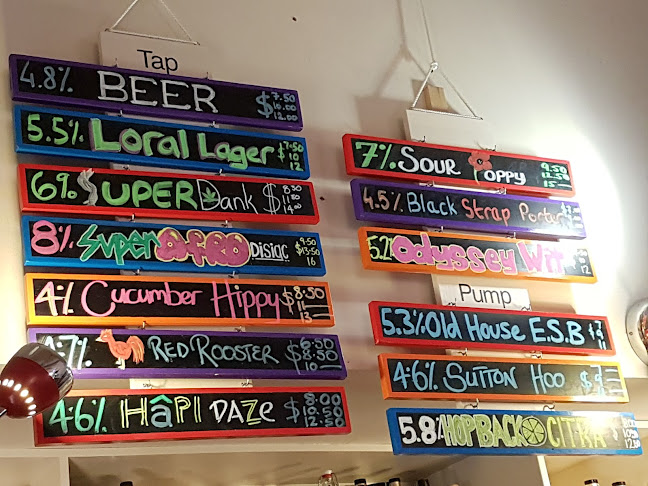 Tap
4.8% BEER $7.50 10.00 12.00
5.5% Loral Lager $7.50 10 12
6% SUPER Dank $8.50 14.00
8% Super AFRO DISIAC 9.50 $13.50 16
4% Cucumber Hippy $8.50 11 13
4.7% RED ROOSTER $6.50 8.50 10
4.6% HâPI DAZE $8.00 10.50 12.50
7% SOUR POPPY 9.50 12.50 15
4.5% Black Strap Porter
5.2 Odyssey Wit 12
Pump
5.3% Old House E.S.B
4.6% SUTTON HOO $
5.8% HOPBACK CITRA